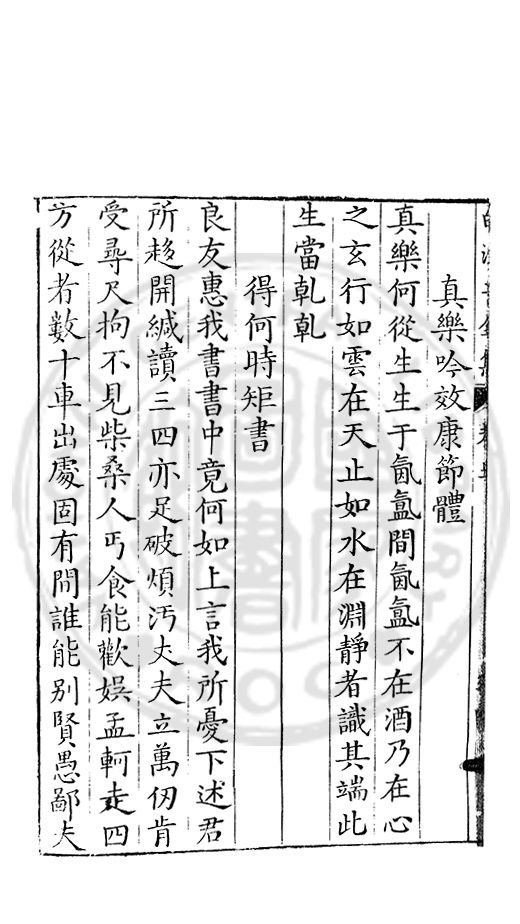 真樂吟效康節體
真樂何從生生于氤氳間氤氳不在酒乃在心
之玄行如雲在天止如水在淵靜者識其端此
生當乹乹
得何時矩書
良友惠我書書中竟何如上言我所憂下述君
所趍開緘讀三四亦足破煩汚丈夫立萬仞肯
受尋尺拘不見柴桑人丐食能歡娛孟軻走四
方從者數十車出處固有間誰能别賢愚鄙夫